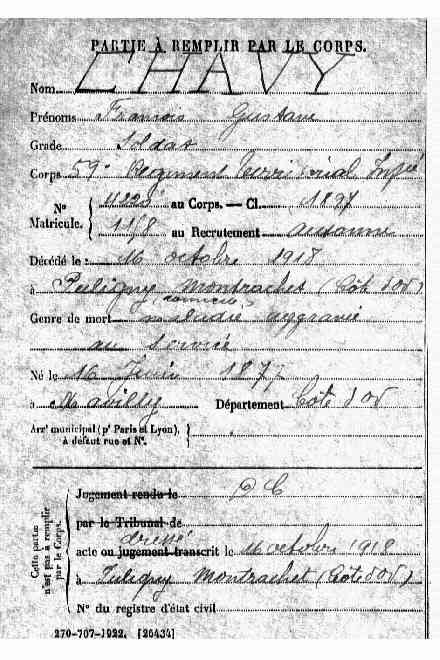 PARTIE À REMPLIR PAR LE CORPS.
Nom CHAVY
Prénoms François Gustave
Grade Soldat
Corps 59e Régiment Territorial Infie
No Matricule. au Corps. — Cl. 1897
1158 au Recrutement Auxonne
Décédé le : 16 octobre 1918
à Puligny Montrachet (Côte d'Or)
contractée
Genre de mort maladie aggravée
au service
Né le 16 Juin 1877
à Mavilly Département Côte d'Or
Arrt municipal (pr Paris et Lyon), à défaut rue et No.
Cette partie n'est pas à remplir par le Corps.
Jugement rendu le D C
par le Tribunal de
dressé
acte ou jugement transcrit le 16 octobre 1918
à Puligny Montrachet (Côte d'Or)
No du registre d'état civil
270-707-1922. [26434]